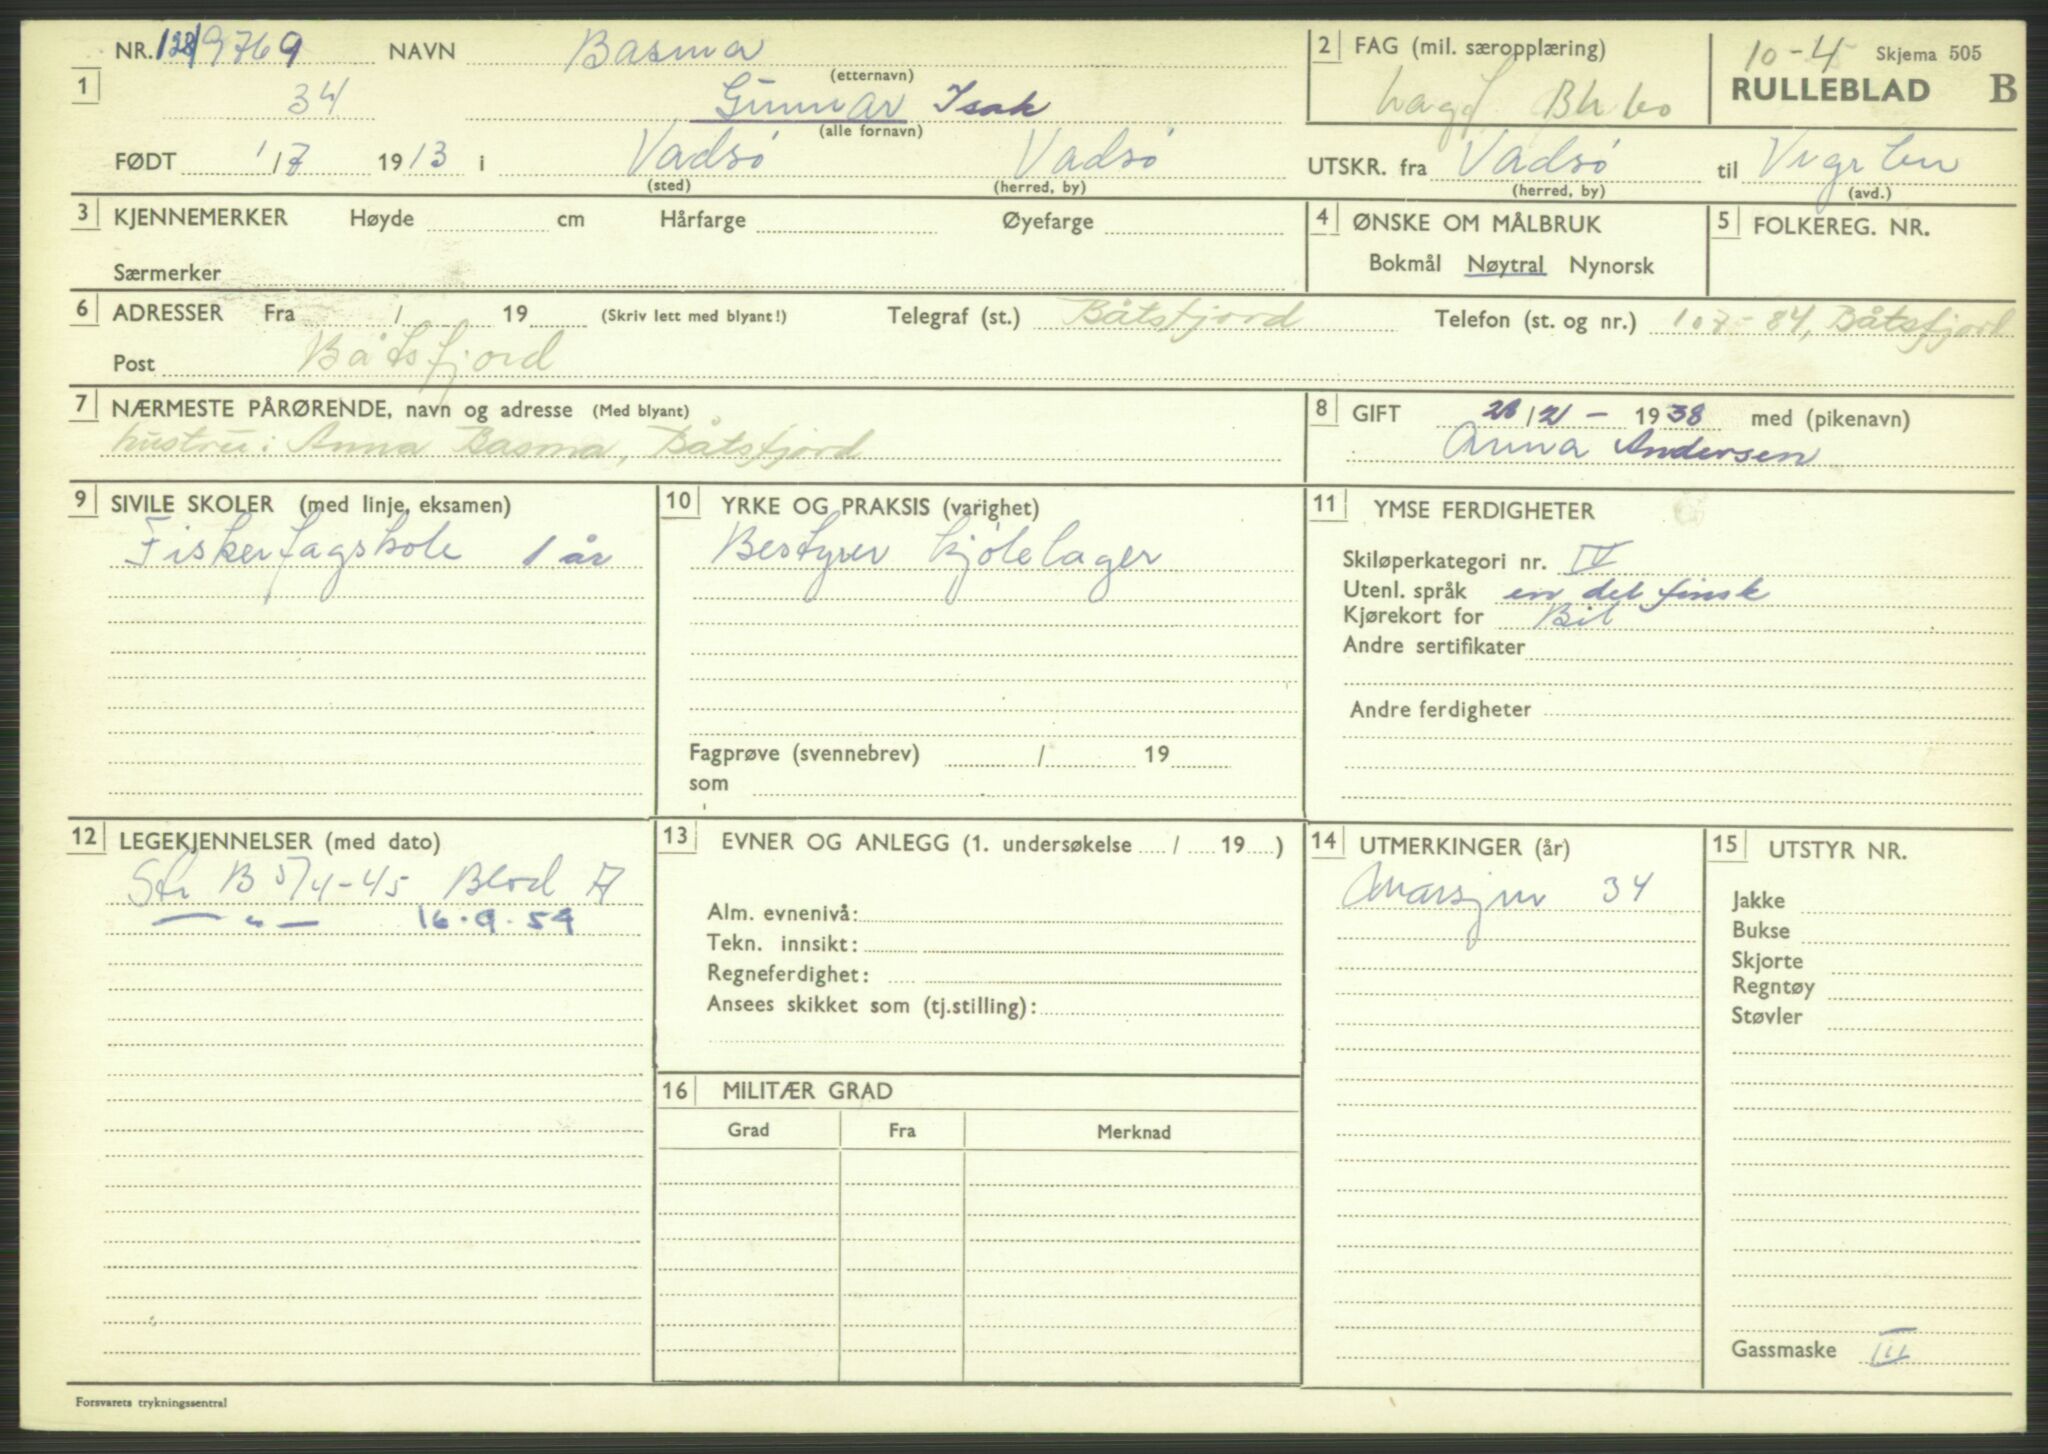 NR. 128/9769 NAVN Basma
(etternavn)
1 34 Gunnar Isak
(alle fornavn)
FØDT 1/7 1913 i Vadsö Vadsö
(sted) (herred, by)
2 FAG (mil. særopplæring)
10-4 Skjema 505
RULLEBLAD B
UTSKR. fra Vadsö til
(herred, by) (avd.)
3 KJENNEMERKER Høyde cm Hårfarge Øyefarge
Særmerker
4 ØNSKE OM MÅLBRUK
Bokmål Nøytral Nynorsk
5 FOLKEREG. NR.
6 ADRESSER Fra / 19 (Skriv lett med blyant!) Telegraf (st.) Båtsfjord Telefon (st. og nr.) 107-84, Båtsfjord
Post Båtsfjord
7 NÆRMESTE PÅRØRENDE, navn og adresse (Med blyant)
hustru: Anna Basma, Båtsfjord
8 GIFT 1938 med (pikenavn)
Anna Andersen
9 SIVILE SKOLER (med linje, eksamen)
Fiskerfagskole 1 år
10 YRKE OG PRAKSIS (varighet)
Bestyrer kjölelager
Fagprøve (svennebrev) / 19
som
11 YMSE FERDIGHETER
Skiløperkategori nr. IV
Utenl. språk en del finsk
Kjørekort for Bil
Andre sertifikater
Andre ferdigheter
12 LEGEKJENNELSER (med dato)
Str B 5/4-45 Blod A
— " — 16.9.54
13 EVNER OG ANLEGG (1. undersøkelse / 19 )
Alm. evnenivå:
Tekn. innsikt:
Regneferdighet:
Ansees skikket som (tj.stilling):
14 UTMERKINGER (år)
34
15 UTSTYR NR.
Jakke
Bukse
Skjorte
Regntøy
Støvler
Gassmaske III
16 MILITÆR GRAD
Grad Fra Merknad
Forsvarets trykningssentral